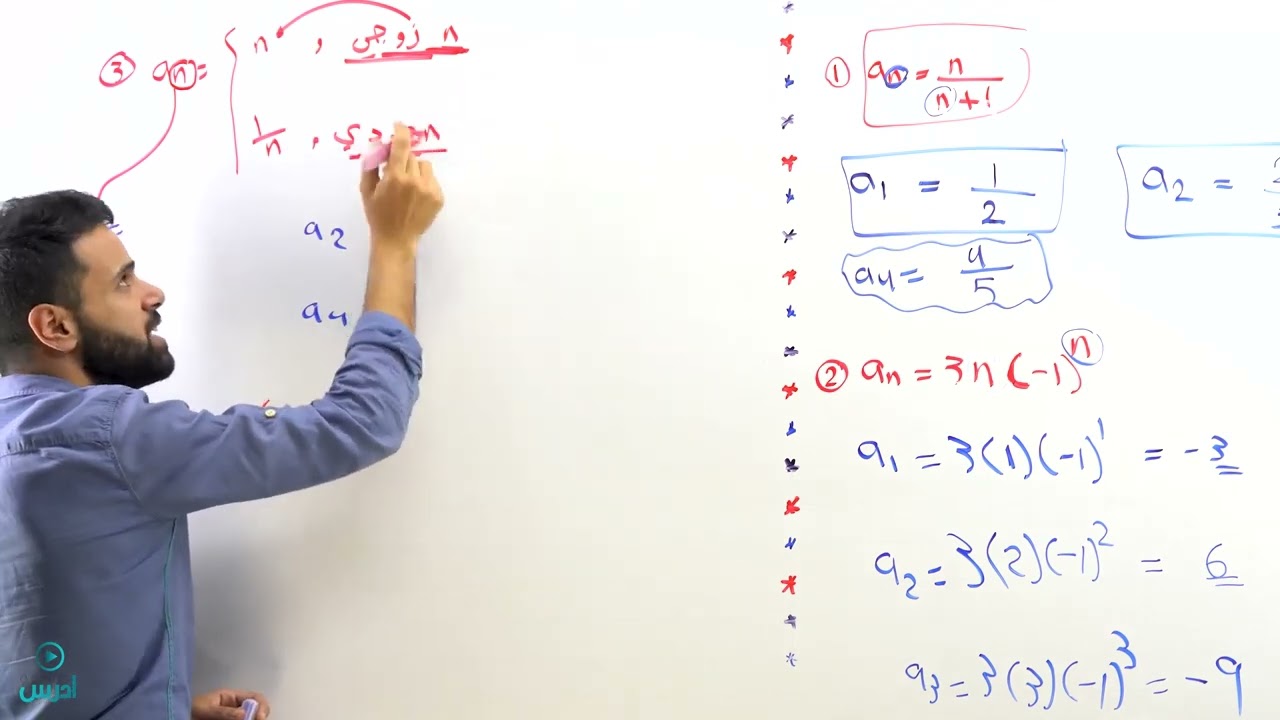 ③ aₙ = { n , زوجي n
1/n , فردي n
a₂
a₄
① aₙ = n/(n+1)
a₁ = 1/2
a₂ =
a₄ = 4/5
② aₙ = 3n(-1)ⁿ
a₁ = 3(1)(-1)¹ = -3
a₂ = 3(2)(-1)² = 6
a₃ = 3(3)(-1)³ = -9
ادرس